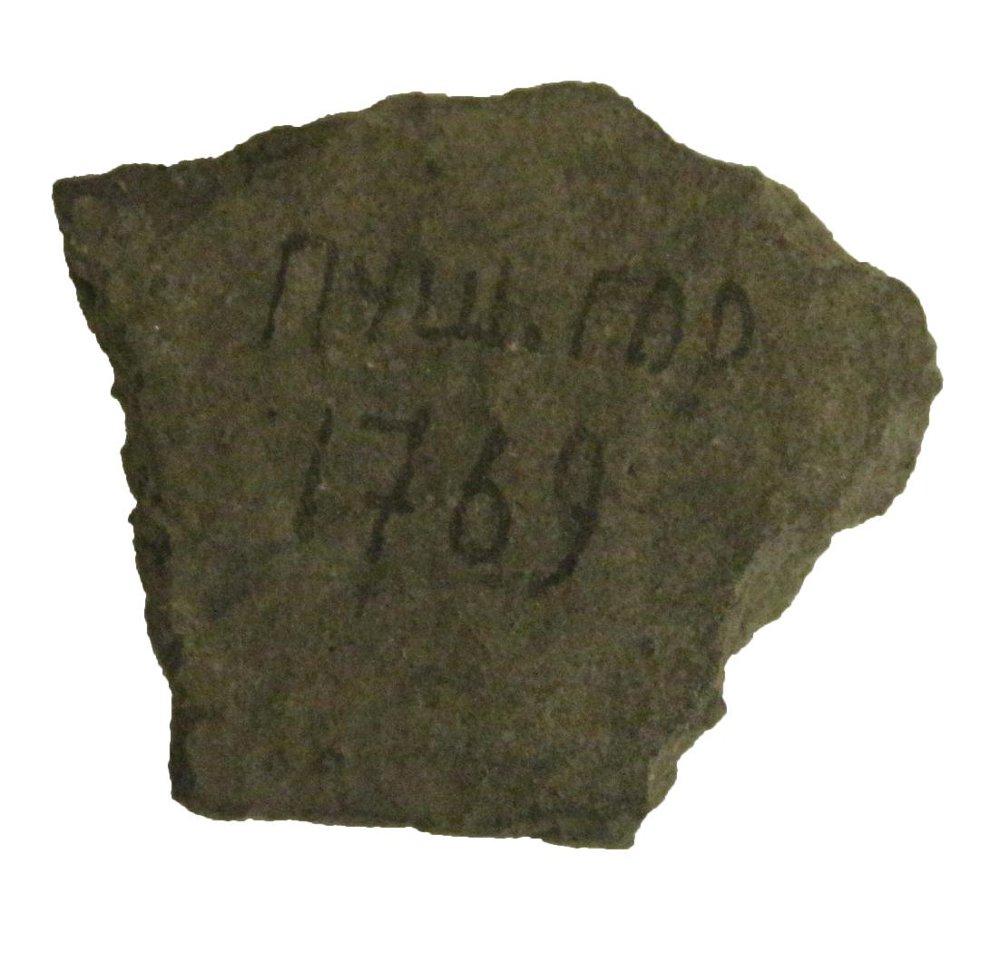 Пущ. гор
1769